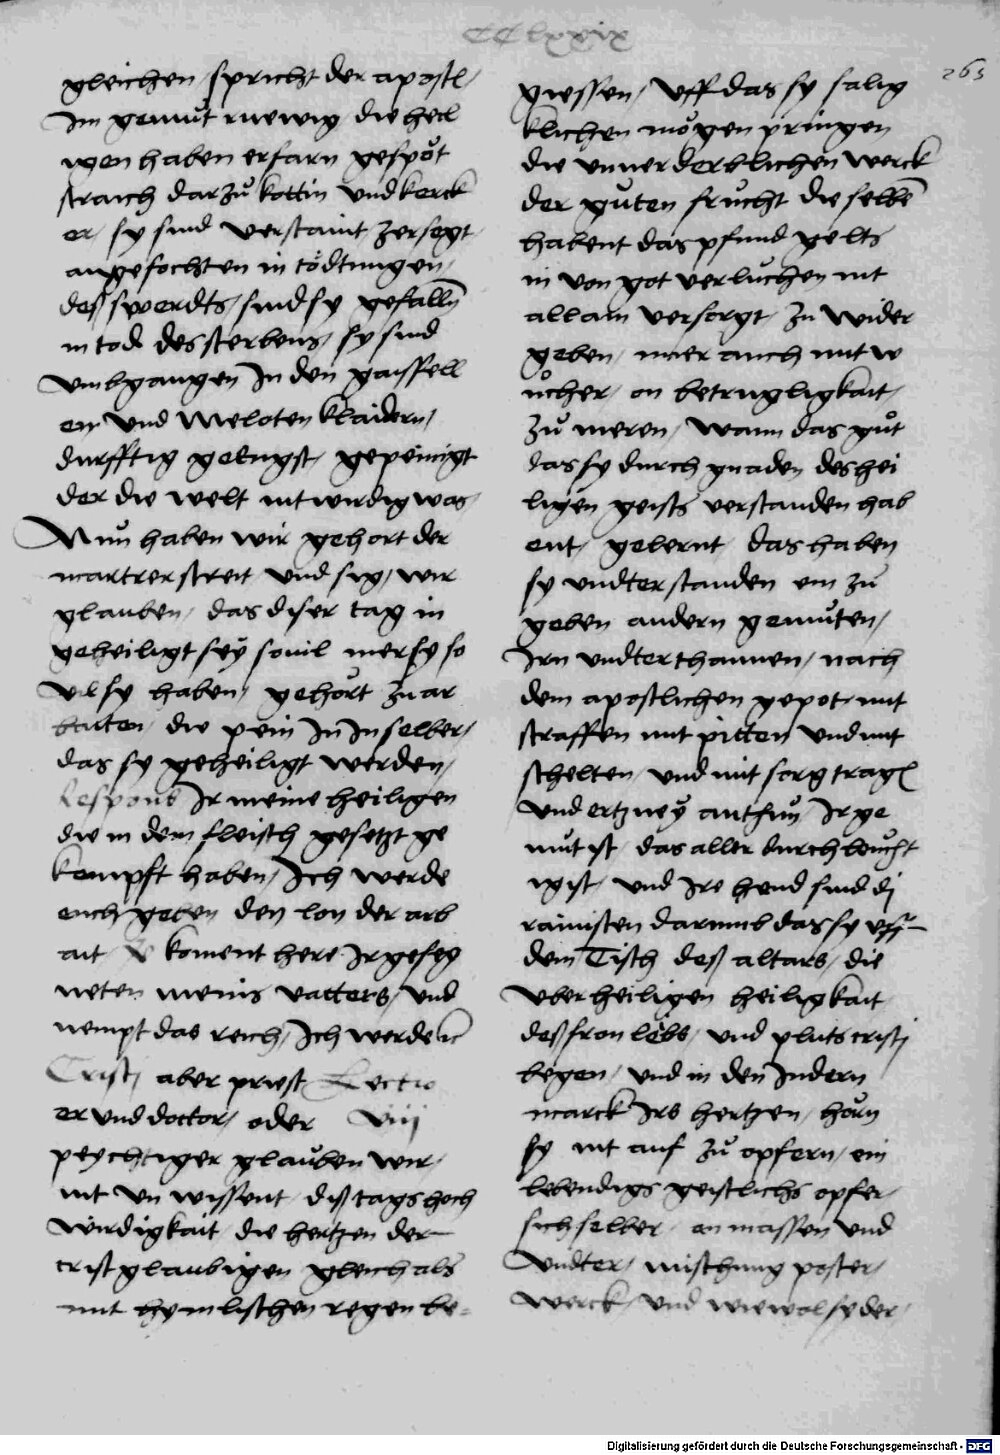 CClxxix
263
gleichen / spricht der apostl /
Im gemüt ruewig die heil
igen haben erfarn gespöt
straich darzů kottin und kerck
er / sy sind verstaint zersegt
angefochten in tödtungen /
deß swerdts / sind sy gefalln̄
in tod des sterbens / sy sind
umbgangen In den gaissfell
en und Meloten klaidern /
durfftig geengst / gepeinigt
der die welt nit wirdig was
Nun haben wir gehort der
martrer streit und sig / wir
glauben / das diser tag in
geheiligt sey souil mer sy so
vil sy haben / gehört zu ar
baiten / die pein In In selber /
das sy geheiligt werden /
Respons Ir meine heiligen
die in dem fleisch gesetzt ge
kempft haben / Ich werde
euch geben den lon der arb
ait / koment here Ir geseg
neten meins vatters / und
nempt das reich / Ich werde
Cristi aber priest Lectio
er und doctor / oder viij
peychtiger glauben wir /
nit un wissent / diß tags hoch
wirdigkait die hertzen der
cristglaubigen gleich als
mit hymlischen regen be-
giessen / uff das sy salig
klichen mögen pringen
die unuerderblichen werck
der guten frücht die selben̄
habent das pfund gelts
in von got verluchen nit
allain versorgt / zu wider
geben / mer auch mit w
ůcher / on betrugligkait /
zů meren / wann das gůt
das sy durch gnaden des hei
ligen geists verstanden hab
ent / gelernt / das haben
sy undterstanden ein zů
geben andern gemüten /
Irn undterthannen / nach
dem apostlichen gepot / mit
straffen mit pitten und mit
schelten / und mit sorg trag
und ertzney anthun Ir ge
müt ist / das aller durchleücht
igist / und Ire hend sind di
rainisten darumb das sy uff
dem Tisch deß altars / die
uberheiligen heiligkait
deß fron lebs / und pluts cristi
begen / und in den Indern
marck Irs hertzen / hörn
sy nit auf zů opfern / ein
lebendigs geistlichs opfer /
sich selber / on massen und
undter / mischung poster /
werck / und wiewol sy der /
Digitalisierung gefördert durch die Deutsche Forschungsgemeinschaft - DFG